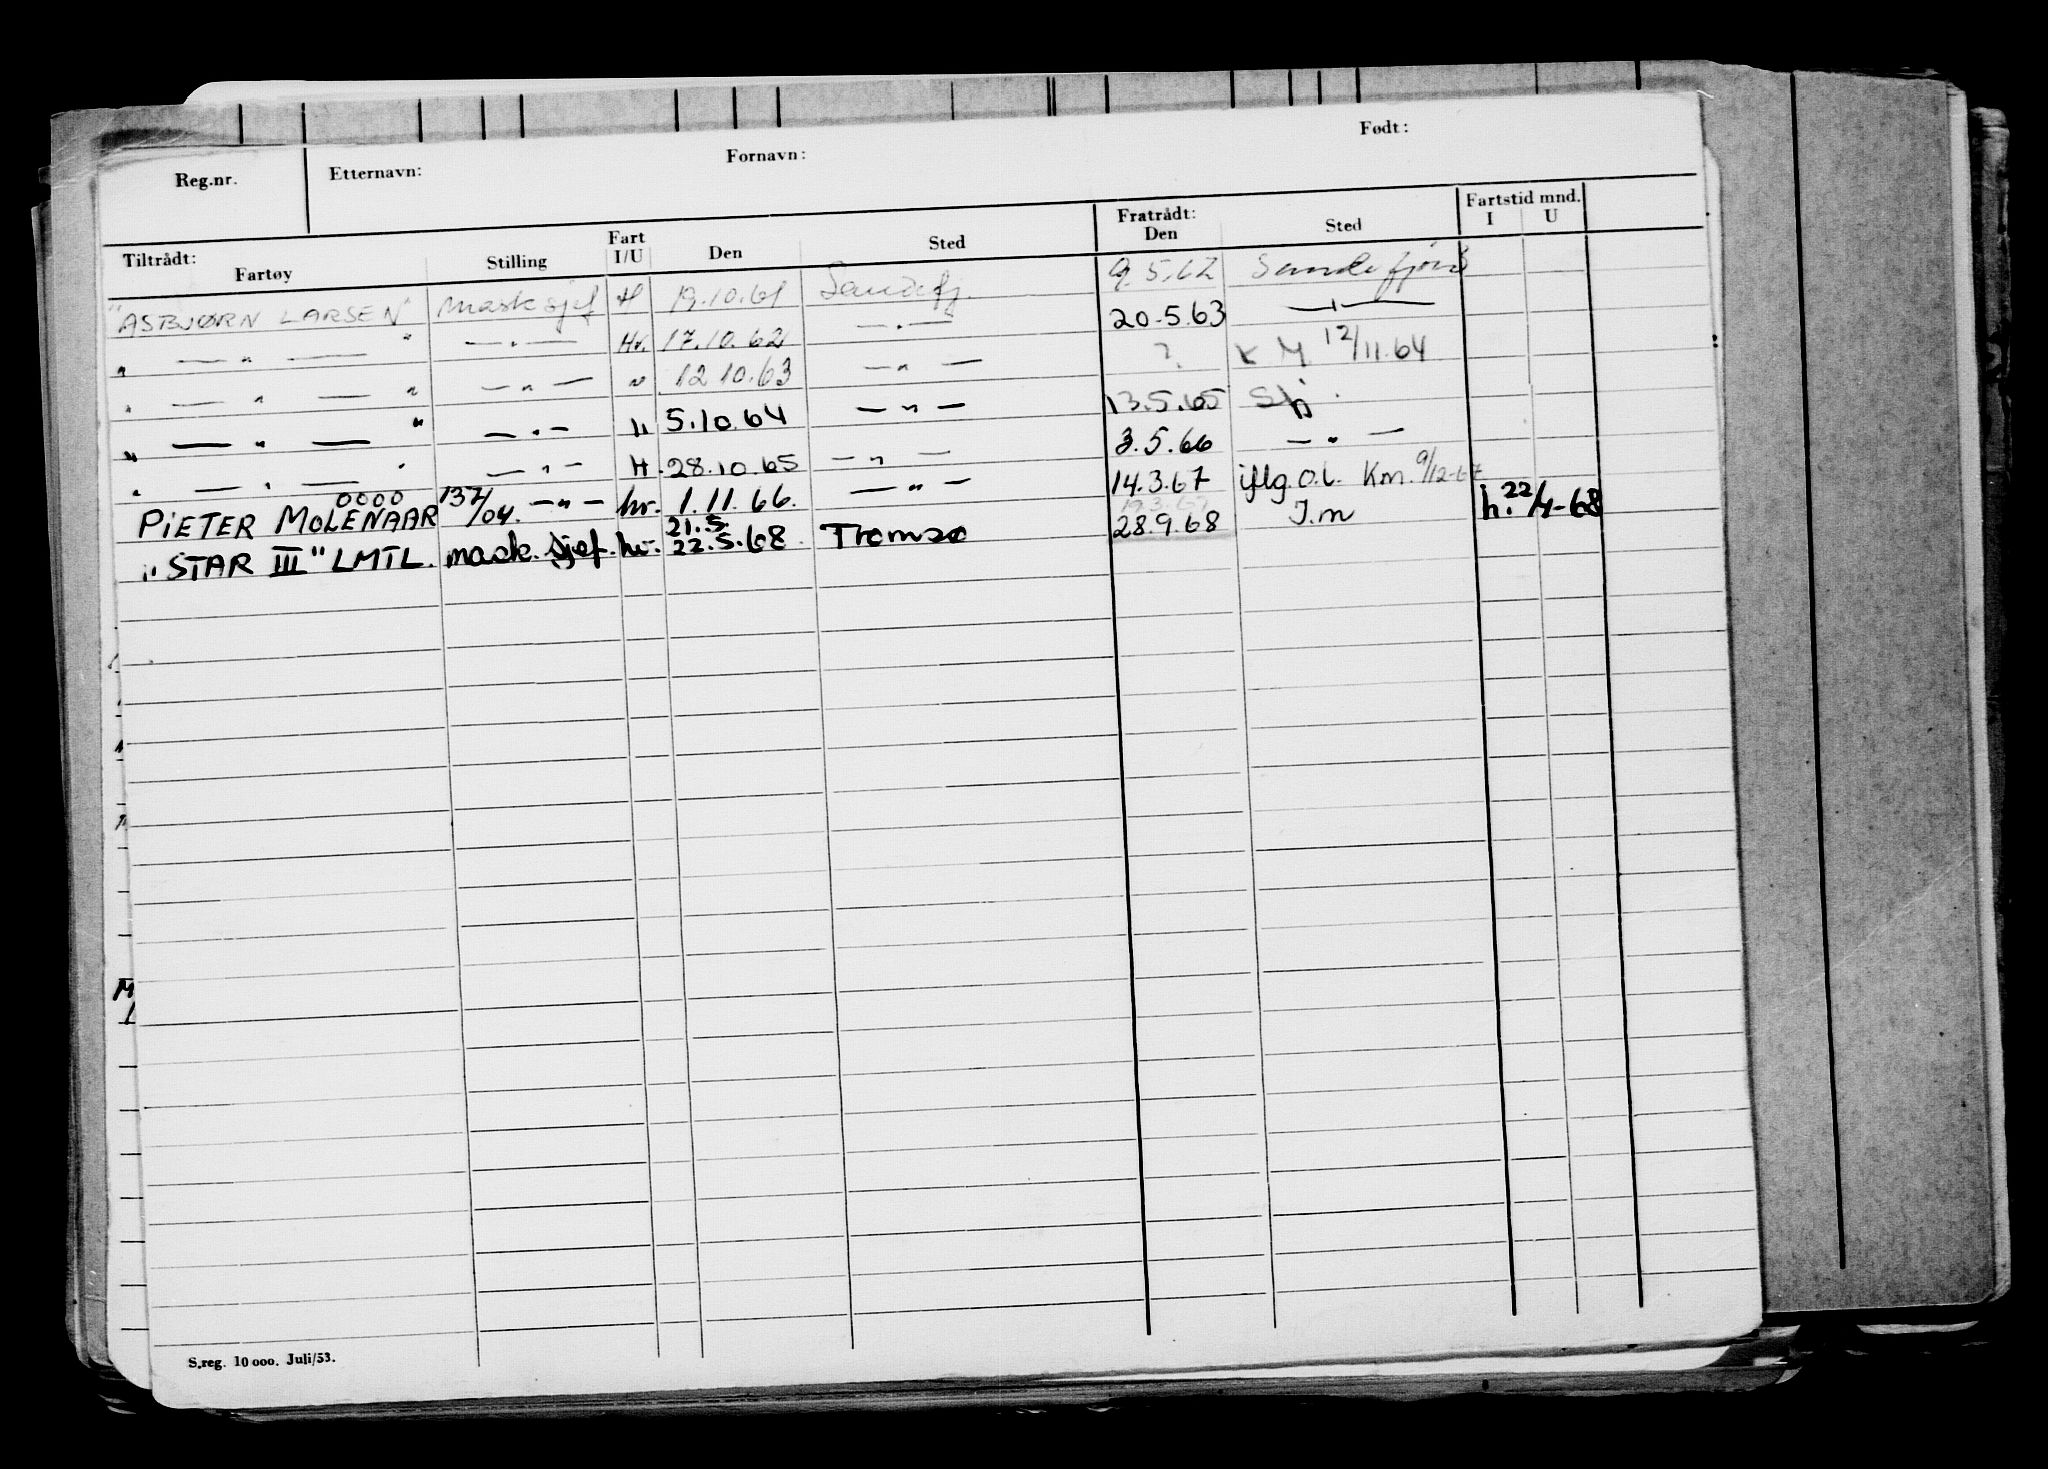 Reg.nr. Etternavn: Fornavn: Født:
Tiltrådt: Fratrådt: Fartstid mnd.
Fartøy Stilling Fart I/U Den Sted Den Sted I U
"ASBJØRN LARSEN" mask sjef H 19.10.61 Sandefj. 9.5.62 Sandefjord
" — " — " — " — Hv. 17.10.62 — " — 20.5.63 — " —
" — " — " — " — " 12 10.63 — " — ? K M 12/11.64
" — " — " — " — " 5.10.64 — " — 13.5.65 Sfj.
" — " — " — " — H. 28.10.65 — " — 3.5.66 — " —
PIETER MOLENAAR 0000 137/04. — " — hv. 1.11.66. — " — 14.3.67 iflg. O.l. Km. 9/12-67
"STAR III" LMTL. mask. sjef. hv. 21.5. 22.5.68. Tromsø 28.9.68 I.m h. 22/4-68
S.reg. 10 000. Juli/53.